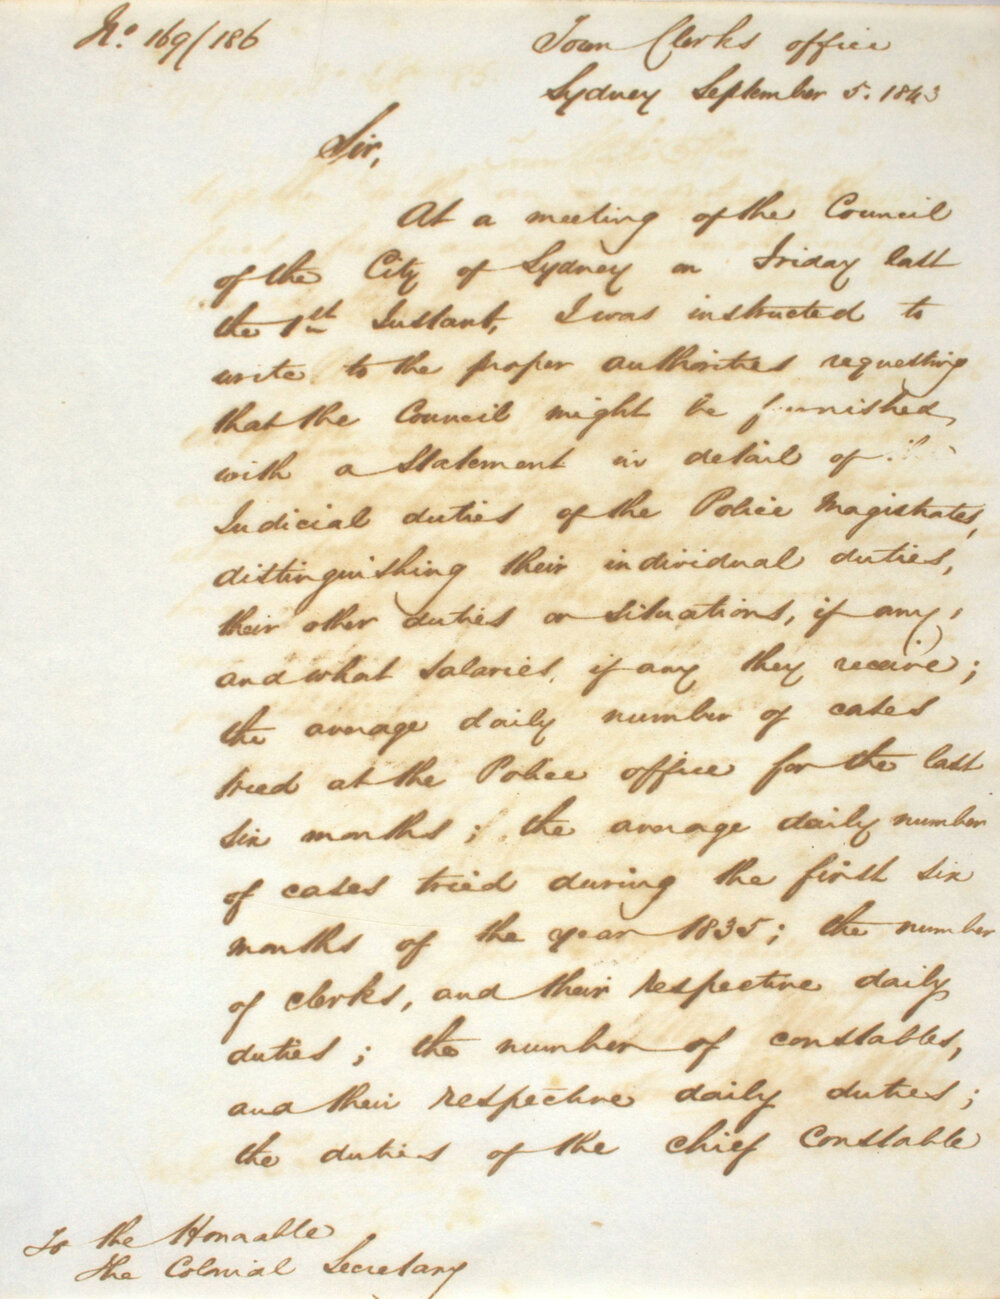 No. 169/186
Town Clerks office
Sydney September 5. 1843
Sir,
At a meeting of the Council
of the City of Sydney on Friday last
the 1st Instant, I was instructed to
write to the proper authorities requesting
that the Council might be furnished
with a Statement in detail of
Judicial duties of the Police Magistrates,
distinguishing their individual duties,
their other duties or situations, if any,
and what Salaries, if any they receive;
the average daily number of cases
tried at the Police office for the last
six months; the average daily number
of cases tried during the first six
months of the year 1835; the number
of clerks, and their respective daily
duties; the number of constables,
and their respective daily duties;
the duties of the chief Constable
To the Honorable
the Colonial Secretary